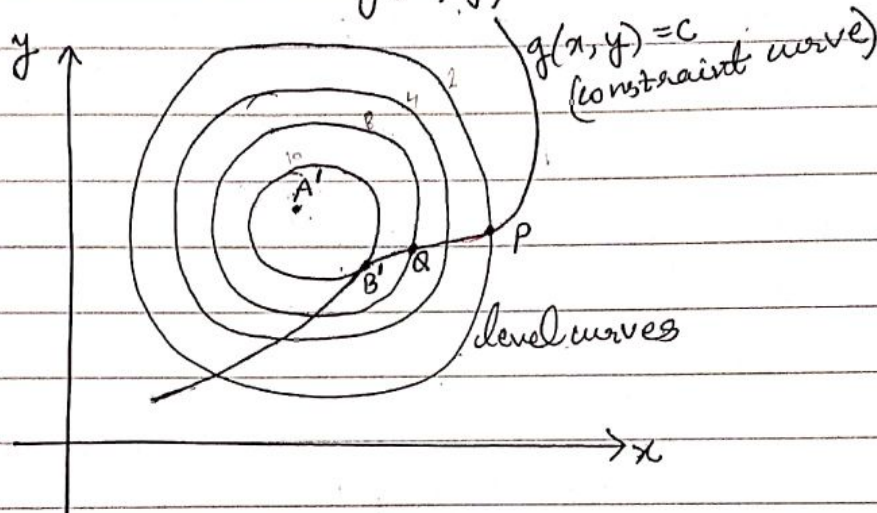 y
g(x, y) = c
(constraint curve)
2
4
8
10
A'
B'
Q
P
level curves
x